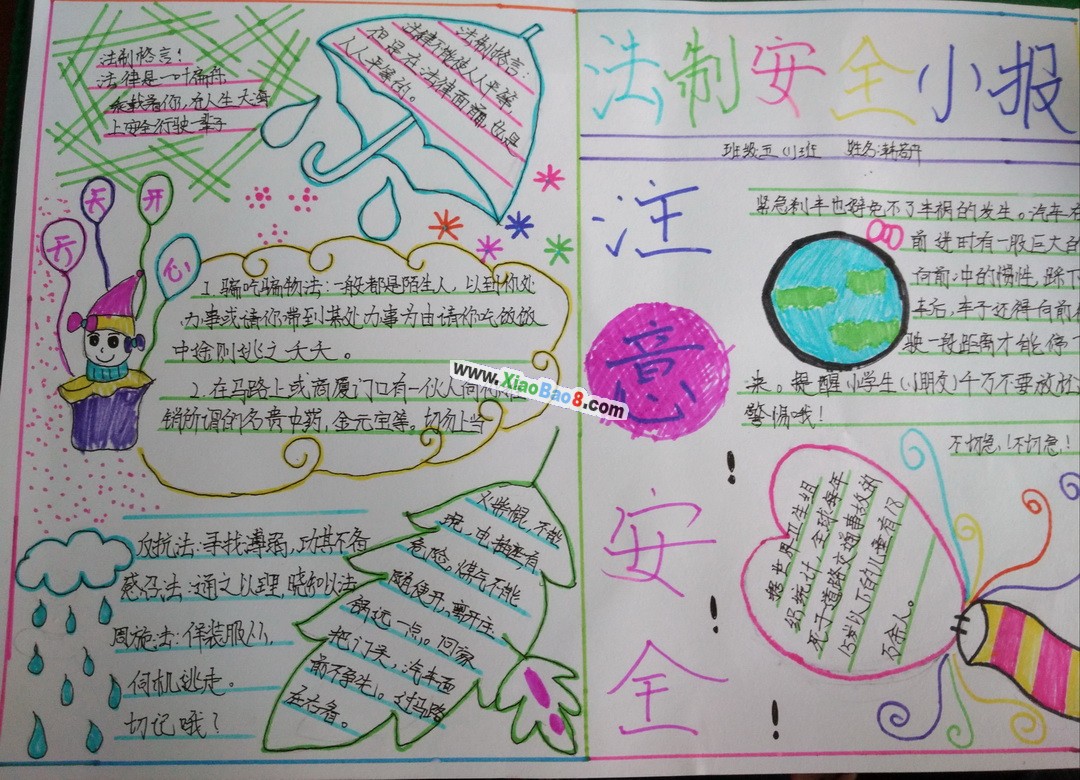 法制安全小报
班级五(1)班 姓名:韩
法制格言!
法律是一叶扁舟
承载着你,在人生大海
上安全行驶一辈子
法制格言:
法律不能使人人平等,
但是在法律面前,
人人平等的。
天天开心
1.骗吃骗物法:一般都是陌生人,以到你处
办事或请你带到某处办事为由请你吃饭饭
中途则逃之夭夭。
2.在马路上或商厦门口有一伙人向你推
销所谓的名贵中药,金元宝等。切勿上当
www.XiaoBao8.com
反抗法:寻找薄弱,功其不备
感召法:通之以理,晓知以法
周施法:佯装服从,
伺机逃走。
切记哦?
火柴棍,不能
玩,电插座有
危险。煤气不能
随便开,离开庄
稍远一点。回家
把门关,汽车面
前不争先。过马路
左右看。
注意安全
!
!
!
紧急刹车也避免不了车祸的发生。汽车在
前进时有一股巨大的
向前冲的惯性,踩下
车后,车子还得向前
驶一段距离才能停下
来。提醒小学生(小朋友)千万不要放松
警惕哦!
不切急!不切急!
据世界卫生组
织统计,全球每年
死于道路交通事故的
15岁以下的儿童有18
万余人。